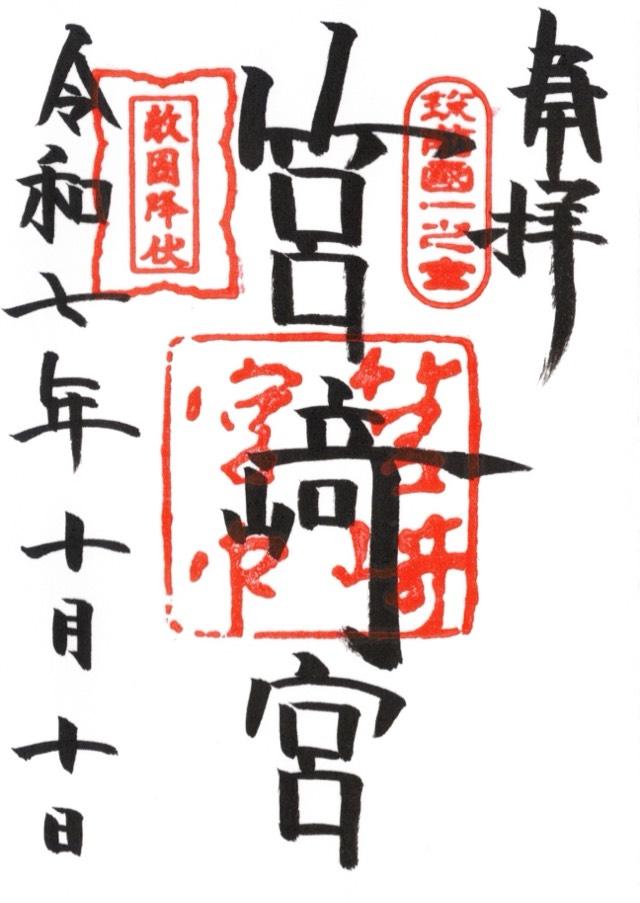 奉拝
筑前國一之宮
筥﨑宮
筥崎
宮印
敵国降伏
令和七年十月十日